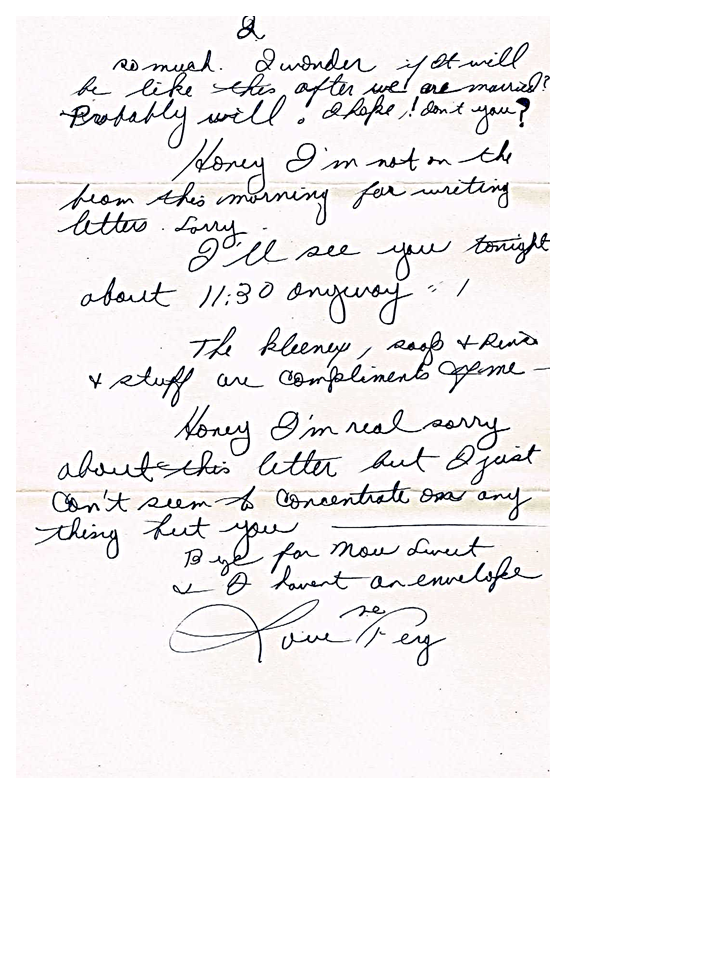 2
so much. I wonder if it will
be like this after we are married?
Probably will. I hope! don't you?
Honey I'm not on the
beam this morning for writing
letters. Sorry.
I'll see you tonight
about 11:30 anyway " !
The kleenex, soap &
& stuff are compliments of me —
Honey I'm real sorry
about this letter but I just
Can't seem to Concentrate on any
thing but you
Bye for now Sweet
I havent an envelope
Love